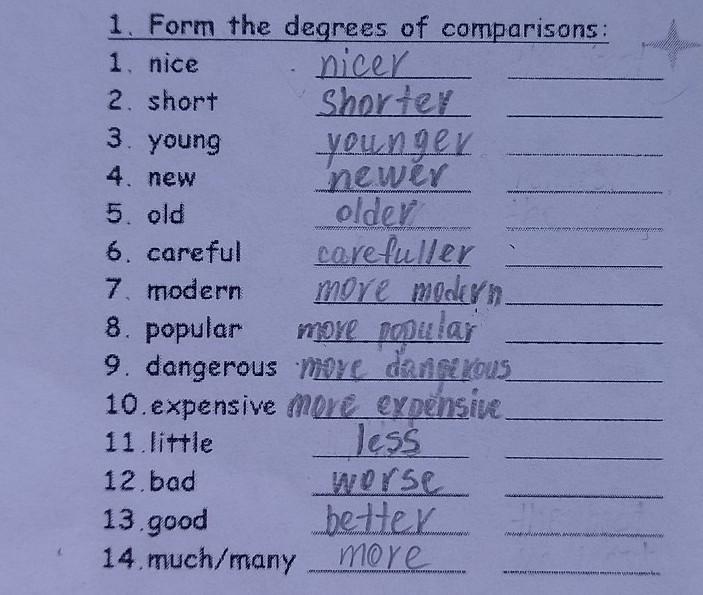 1. Form the degrees of comparisons:
1. nice nicer
2. short shorter
3. young younger
4. new newer
5. old older
6. careful carefuller
7. modern more modern
8. popular more popular
9. dangerous more dangerous
10.expensive more expensive
11.little less
12.bad worse
13.good better
14.much/many more